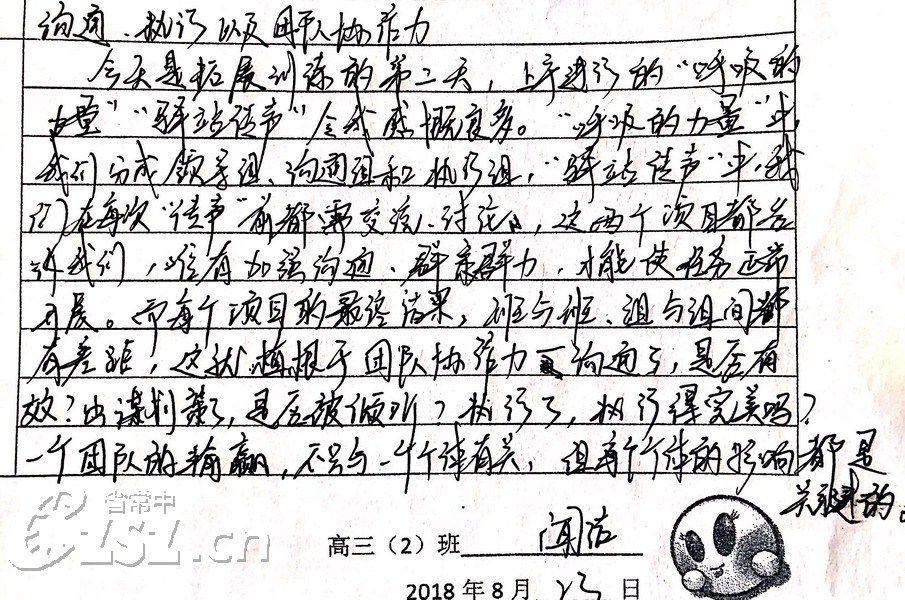 沟通、执行以及团队协作力
今天是拓展训练的第二天，上午进行的“呼吸的
力量”“驿站传声”令我感慨良多。“呼吸的力量”中，
我们分成领导组、沟通组和执行组，“驿站传声”中，我
们在每次“传声”前都需交流、讨论，这两个项目都告
诉我们，唯有加强沟通、群策群力，才能使任务正常
开展。而每个项目的最终结果，班与班、组与组间都
有差距，这就植根于团队协作力 沟通了，是否有
效？出谋划策了，是否被倾听？执行了，执行得完美吗？
一个团队的输赢，不只与一个个体有关，但每个个体的影响都是
关键的。
省常中
CZSLSZ.cn
高三（2）班 闻洁
2018年8月23日